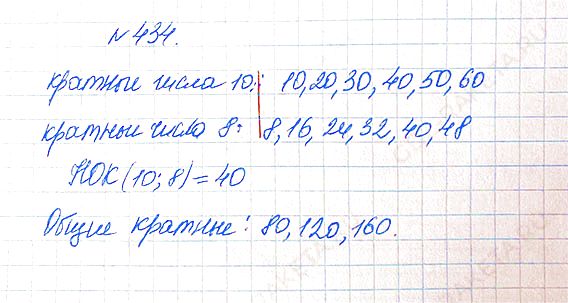 №434.
кратные числа 10: 10, 20, 30, 40, 50, 60
кратные числа 8: 8, 16, 24, 32, 40, 48
НОК (10; 8) = 40
Общие кратные: 80, 120, 160.